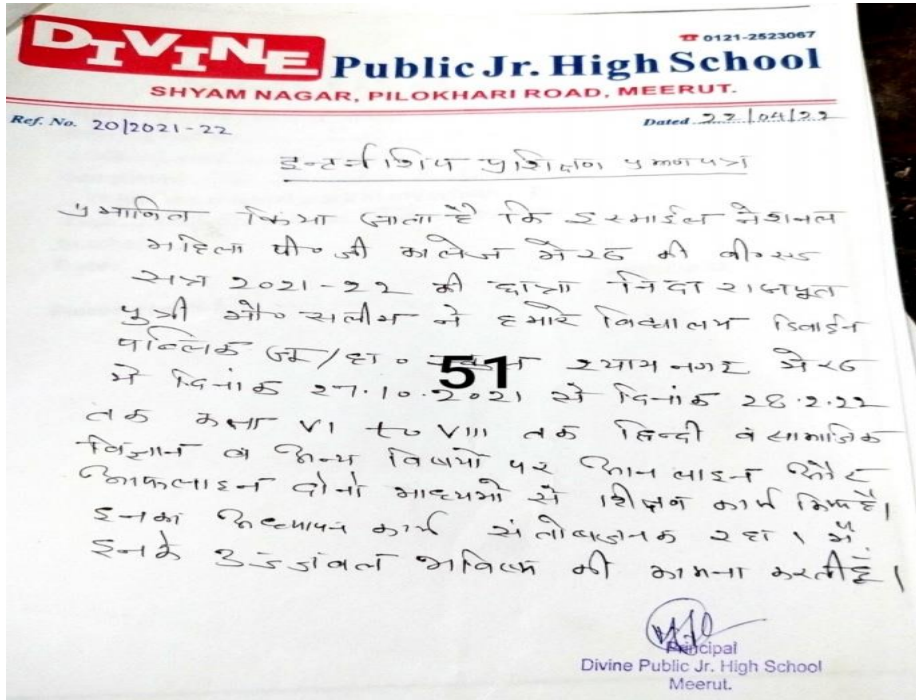 DIVINE Public Jr. High School
☎ 0121-2523067
SHYAM NAGAR, PILOKHARI ROAD, MEERUT.
Ref. No. 20/2021-22 Dated 22/04/22
इन्टर्नशिप प्रशिक्षण प्रमाणपत्र
प्रमाणित किया जाता है कि इस्माईल नेशनल
महिला पी०जी कालेज मेरठ की बी०एड
सत्र 2021-22 की छात्रा निदा राजपूत
पुत्री मौ० सलीम ने हमारे विद्यालय डिवाईन
पब्लिक जू/हा० श्याम नगर मेरठ
51
में दिनांक 27.10.2021 से दिनांक 28.2.22
तक कक्षा VI to VIII तक हिन्दी व सामाजिक
विज्ञान व अन्य विषयों पर आन लाइन और
आफलाइन दोनो माध्यमों से शिक्षण कार्य किया है।
इनका अध्यापन कार्य संतोषजनक रहा। मैं
इनके उज्जवल भविष्य की कामना करती हूँ।
Principal
Divine Public Jr. High School
Meerut.